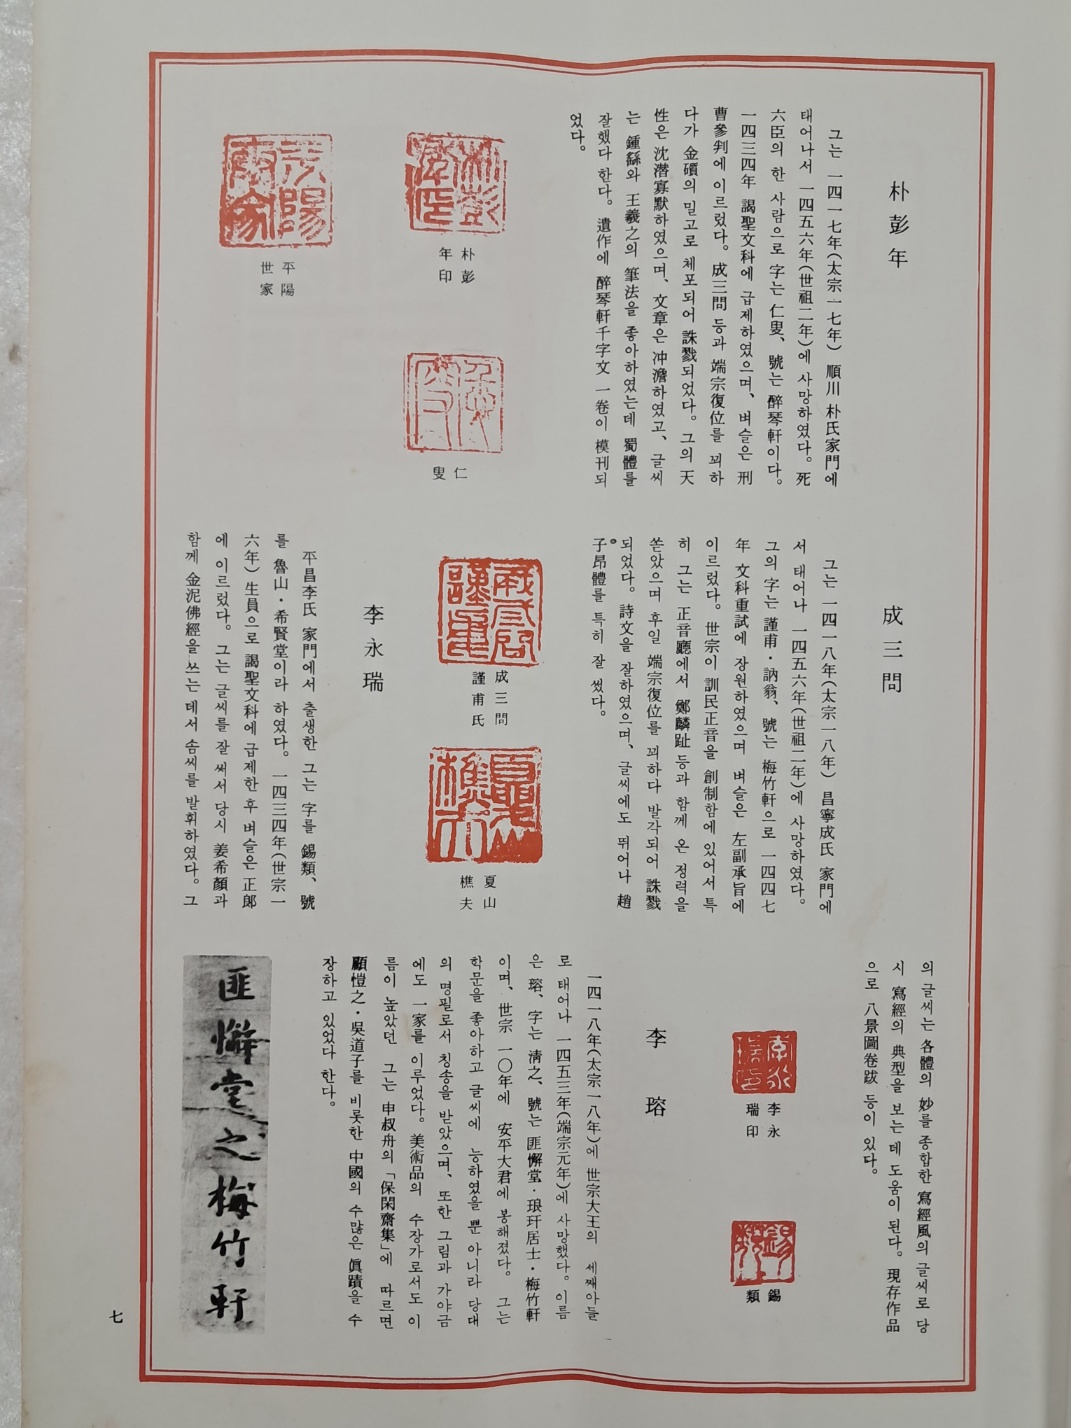 朴彭年
그는 一四一七年(太宗一七年) 順川 朴氏家門에
태어나서 一四五六年(世祖二年)에 사망하였다。死
六臣의 한 사람으로 字는 仁叟、號는 醉琴軒이다。
一四三四年 謁聖文科에 급제하였으며、벼슬은 刑
曹參判에 이르렀다。成三問 등과 端宗復位를 꾀하
다가 金礩의 밀고로 체포되어 誅戮되었다。그의 天
性은 沈潛寡默하였으며、文章은 冲澹하였고、글씨
는 鍾繇와 王羲之의 筆法을 좋아하였는데 蜀體를
잘했다 한다。遺作에 醉琴軒千字文 一卷이 模刊되
었다。
朴彭
年印
平陽
世家
仁
叟
成三問
그는 一四一八年(太宗一八年) 昌寧成氏 家門에
서 태어나 一四五六年(世祖二年)에 사망하였다。
그의 字는 謹甫・訥翁、號는 梅竹軒으로 一四四七
年 文科重試에 장원하였으며 벼슬은 左副承旨에
이르렀다。世宗이 訓民正音을 創制함에 있어서 특
히 그는 正音廳에서 鄭麟趾 등과 함께 온 정력을
쏟았으며 후일 端宗復位를 꾀하다 발각되어 誅戮
되었다。詩文을 잘하였으며、글씨에도 뛰어나 趙
子昂體를 특히 잘 썼다。
成三問
謹甫氏
夏山
樵夫
李永瑞
平昌李氏 家門에서 출생한 그는 字를 錫類、號
를 魯山・希賢堂이라 하였다。一四三四年(世宗一
六年) 生員으로 謁聖文科에 급제한 후 벼슬은 正郞
에 이르렀다。그는 글씨를 잘 써서 당시 姜希顔과
함께 金泥佛經을 쓰는 데서 솜씨를 발휘하였다。그
의 글씨는 各體의 妙를 종합한 寫經風의 글씨로 당
시 寫經의 典型을 보는 데 도움이 된다。現存作品
으로 八景圖卷跋 등이 있다。
李永
瑞印
錫
類
李瑢
一四一八年(太宗一八年)에 世宗大王의 세째아들
로 태어나 一四五三年(端宗元年)에 사망했다。이름
은 瑢、字는 淸之、號는 匪懈堂・琅玕居士・梅竹軒
이며、世宗 一〇年에 安平大君에 봉해졌다。그는
학문을 좋아하고 글씨에 능하였을 뿐 아니라 당대
의 명필로서 칭송을 받았으며、또한 그림과 가야금
에도 一家를 이루었다。美術品의 수장가로서도 이
름이 높았던 그는 申叔舟의「保閑齋集」에 따르면
顧愷之・吳道子를 비롯한 中國의 수많은 眞蹟을 수
장하고 있었다 한다。
匪懈堂之梅竹軒
七